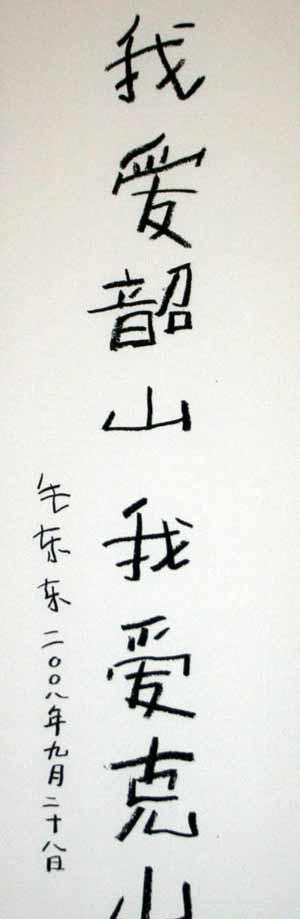 我爱韶山我爱克山
毛东东二〇〇八年九月二十八日